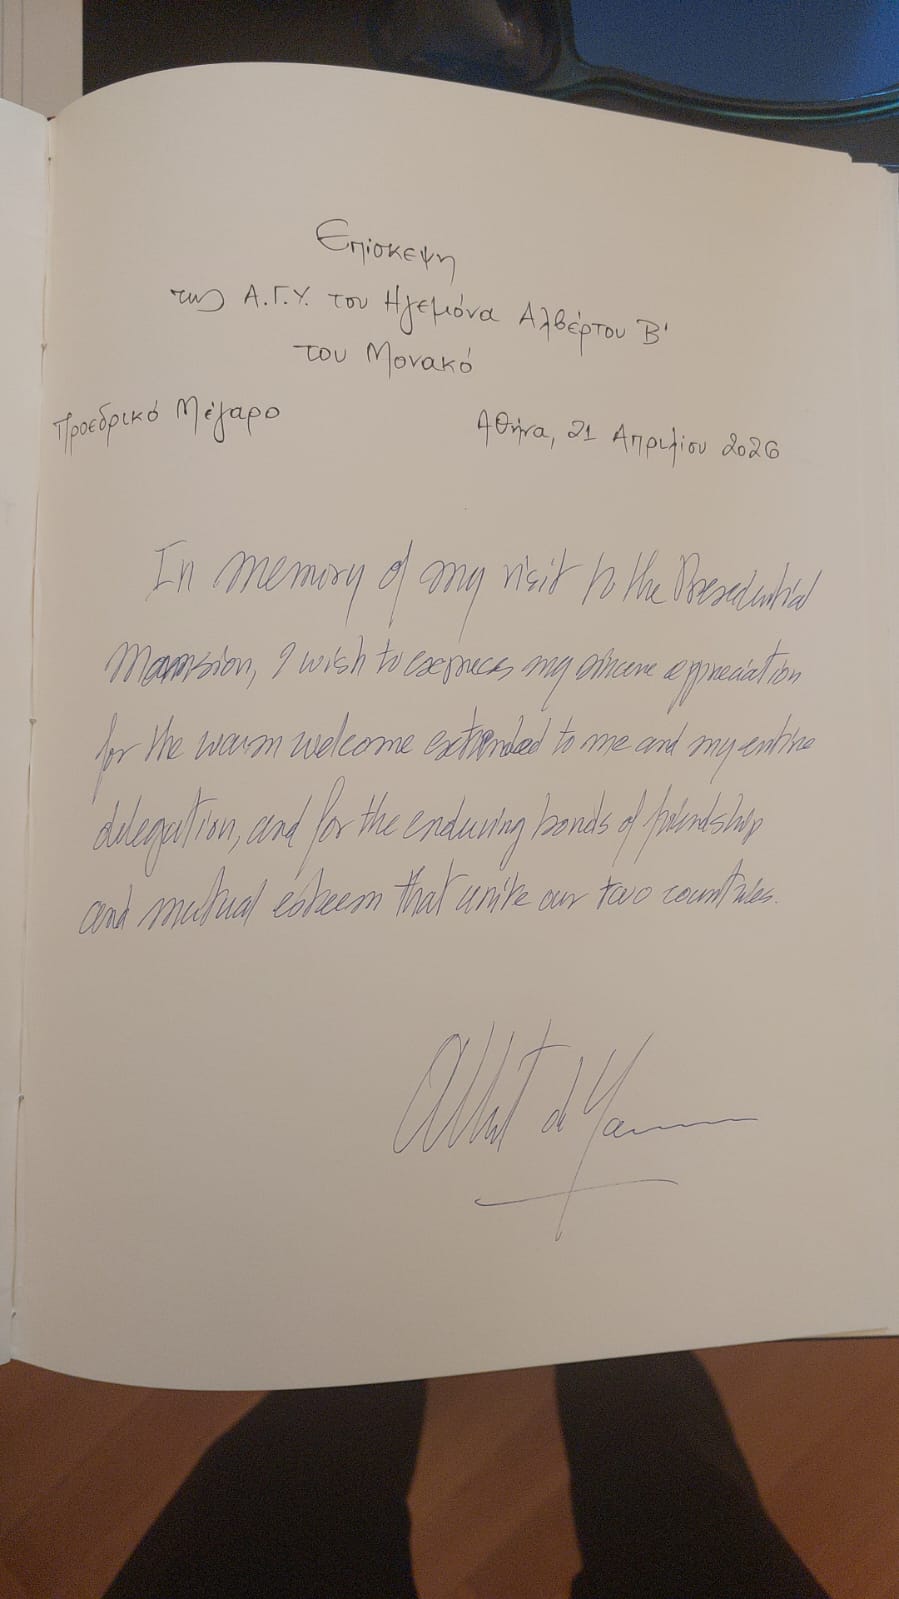 Επίσκεψη
της Α.Γ.Υ. του Ηγεμόνα Αλβέρτου Β'
του Μονακό
Προεδρικό Μέγαρο
Αθήνα, 21 Απριλίου 2026
In memory of my visit to the Presidential
Mansion, I wish to express my sincere appreciation
for the warm welcome extended to me and my entire
delegation, and for the enduring bonds of friendship
and mutual esteem that unite our two countries.
Albert de